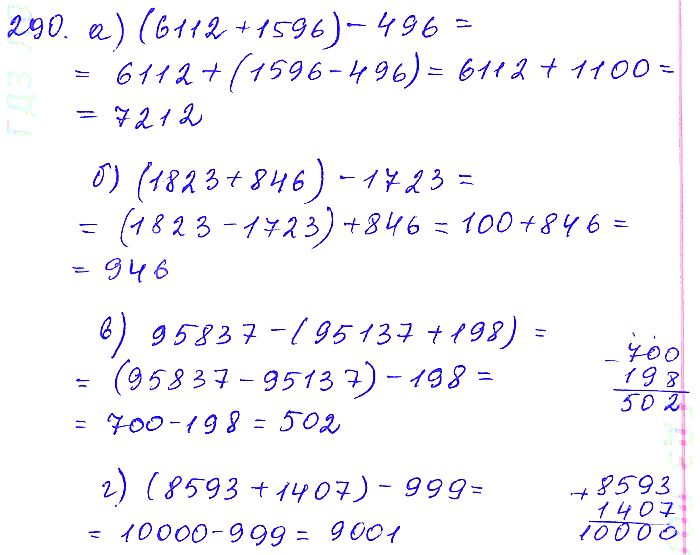 290. а) (6112 + 1596) - 496 =
= 6112 + (1596 - 496) = 6112 + 1100 =
= 7212
б) (1823 + 846) - 1723 =
= (1823 - 1723) + 846 = 100 + 846 =
= 946
в) 95837 - (95137 + 198) =
= (95837 - 95137) - 198 =
= 700 - 198 = 502
- 700
198
502
г) (8593 + 1407) - 999 =
= 10000 - 999 = 9001
+ 8593
1407
10000